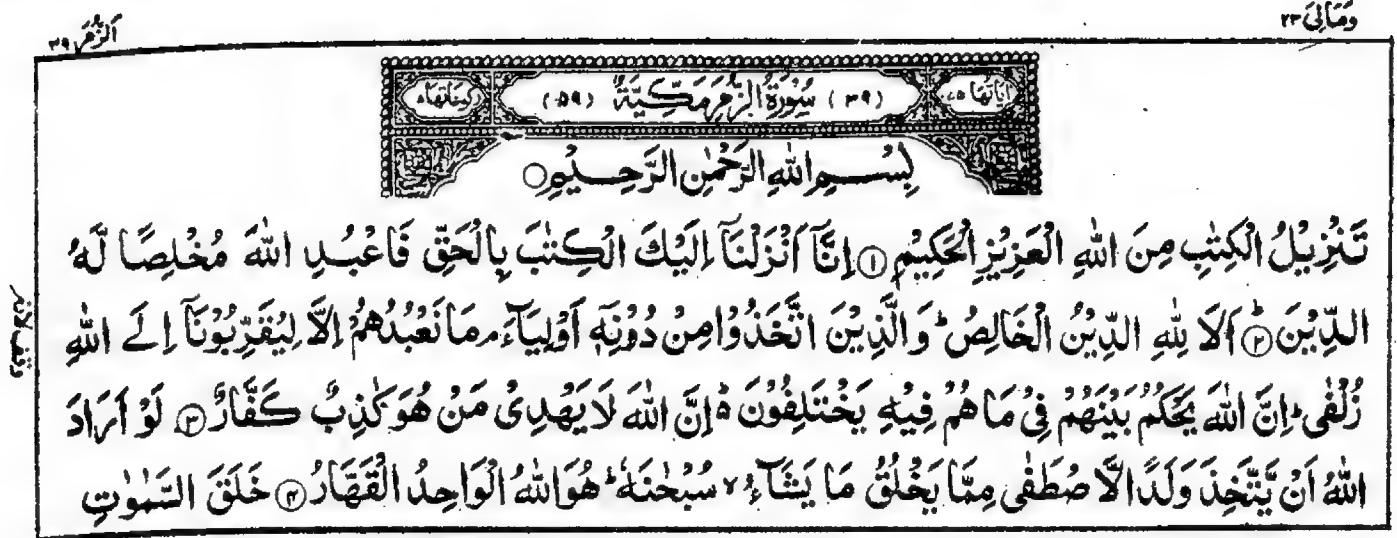 وَمَالِيَ ٢٣
اَلزُّمَر ٣٩
اٰيَاتُهَا ٧٥ (٣٩) سُوْرَةُ الزُّمَرِ مَكِّيَّةٌ (٥٩) رُكُوْعَاتُهَا ٨
بِسْمِ اللهِ الرَّحْمٰنِ الرَّحِيْمِ○
تَنْزِيْلُ الْكِتٰبِ مِنَ اللهِ الْعَزِيْزِ الْحَكِيْمِ ① اِنَّآ اَنْزَلْنَآ اِلَيْكَ الْكِتٰبَ بِالْحَقِّ فَاعْبُدِ اللهَ مُخْلِصًا لَّهُ
الدِّيْنَ ② اَلَا لِلهِ الدِّيْنُ الْخَالِصُ ؕ وَالَّذِيْنَ اتَّخَذُوْا مِنْ دُوْنِهٖٓ اَوْلِيَآءَ ۘ مَا نَعْبُدُهُمْ اِلَّا لِيُقَرِّبُوْنَآ اِلَى اللهِ
زُلْفٰى ؕ اِنَّ اللهَ يَحْكُمُ بَيْنَهُمْ فِيْ مَا هُمْ فِيْهِ يَخْتَلِفُوْنَ ۵ اِنَّ اللهَ لَا يَهْدِيْ مَنْ هُوَ كٰذِبٌ كَفَّارٌ ③ لَوْ اَرَادَ
اللهُ اَنْ يَّتَّخِذَ وَلَدًا لَّاصْطَفٰى مِمَّا يَخْلُقُ مَا يَشَآءُ ۙ سُبْحٰنَهٗ ؕ هُوَ اللهُ الْوَاحِدُ الْقَهَّارُ ④ خَلَقَ السَّمٰوٰتِ